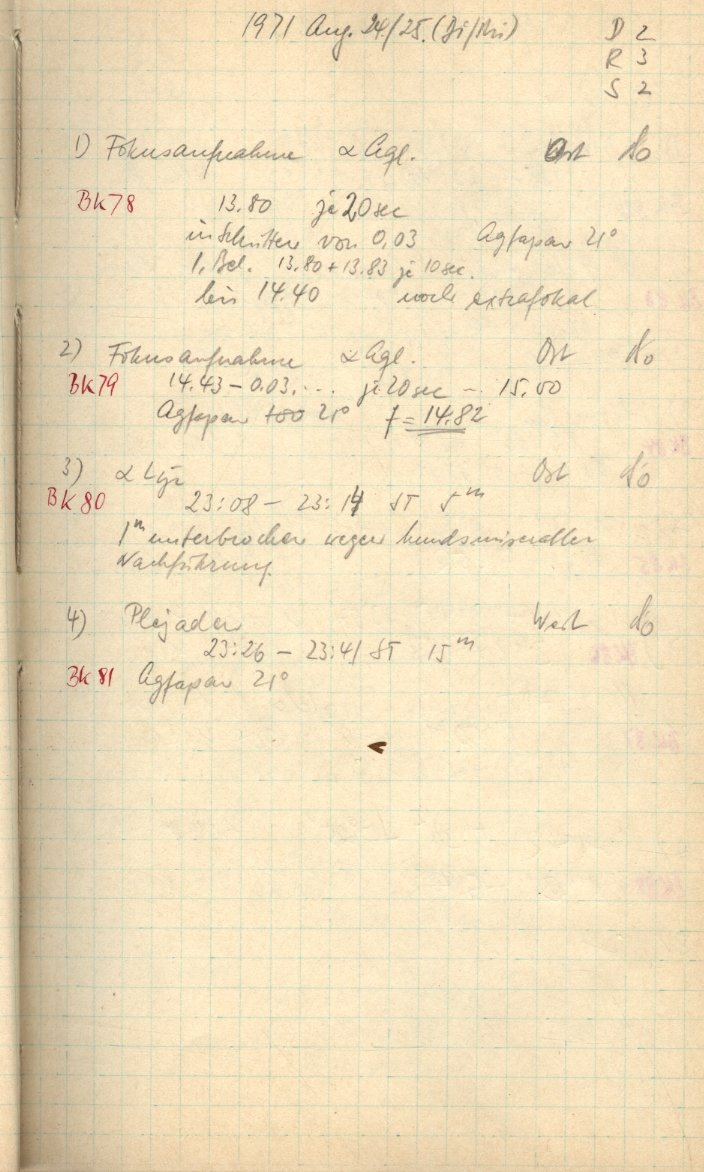 1971 Aug. 24/25. (Di/Mi)
D 2
R 3
S 2
1) Fokusaufnahme α Aql. Ost No
Bk78 13.80 je 20 sec
in Schritten von 0,03 Agfapan 21°
1. Bel. 13.80 + 13.83 je 10 sec.
bis 14.40 noch extrafokal
2) Fokusaufnahme α Aql. Ost No
Bk79 14.43 – 0.03. ... je 20 sec – 15.00
Agfapan 100 21° f = 14.82
3) α Lyr Ost No
Bk 80 23:08 – 23:14 ST 5m
1m unterbrochen wegen hundsmiserabler
Nachführung.
4) Plejaden West No
23:26 – 23:41 ST 15m
Bk 81 Agfapan 21°